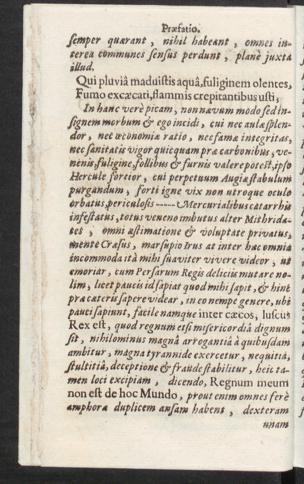 Præfatio.
semper quærant, nihil habeant, omnes in-
terea communes sensus perdunt, planè juxta
illud.
Qui pluviâ maduistis aquâ, fuligine m olentes,
Fumo excæcati, flammis crepitantibus usti,
In hanc verè picam, non navum modo sed in-
signem morbum & ego incidi, cui nec aulæ splen-
dor, nec œconomiæ ratio, nec fama integritas,
nec sanitatis vigor quicquam præ carbonibus, ve-
nenis, fuligine, follibus & furnis valere potest, ipso
Hercule fortior, cui perpetuum Augiæ stabulum
purgandum, forti igne vix non utroque oculo
orbatus, periculosis ----- Mercurialibus catarrhis
infestatus, totus veneno imbutus alter Mithrida-
tes, omni æstimatione & voluptate privatus,
mente Crasus, marsupio Irus at inter hæc omnia
incommoda ità mihi suaviter vivere videor, ut
emoriar, cum Persarum Regis deliciis mutare no-
lim, licet paucis id sapiat quod mihi sapit, & hinc
præ cæteris sapere videar, in eo nempe genere, ubi
pauci sapiunt, facile namque inter cæcos, luscus
Rex est, quod regnum etsi misericordiâ dignum
sit, nihilominus magnâ arrogantiâ à quibusdam
ambitur, magna tyrannide exercetur, nequitiâ,
stultitiâ, deceptione & fraude stabilitur, heic ta-
men loci excipiam, dicendo, Regnum meum
non est de hoc Mundo, prout enim omnes ferè
amphoræ duplicem ansam habent, dexteram
unam